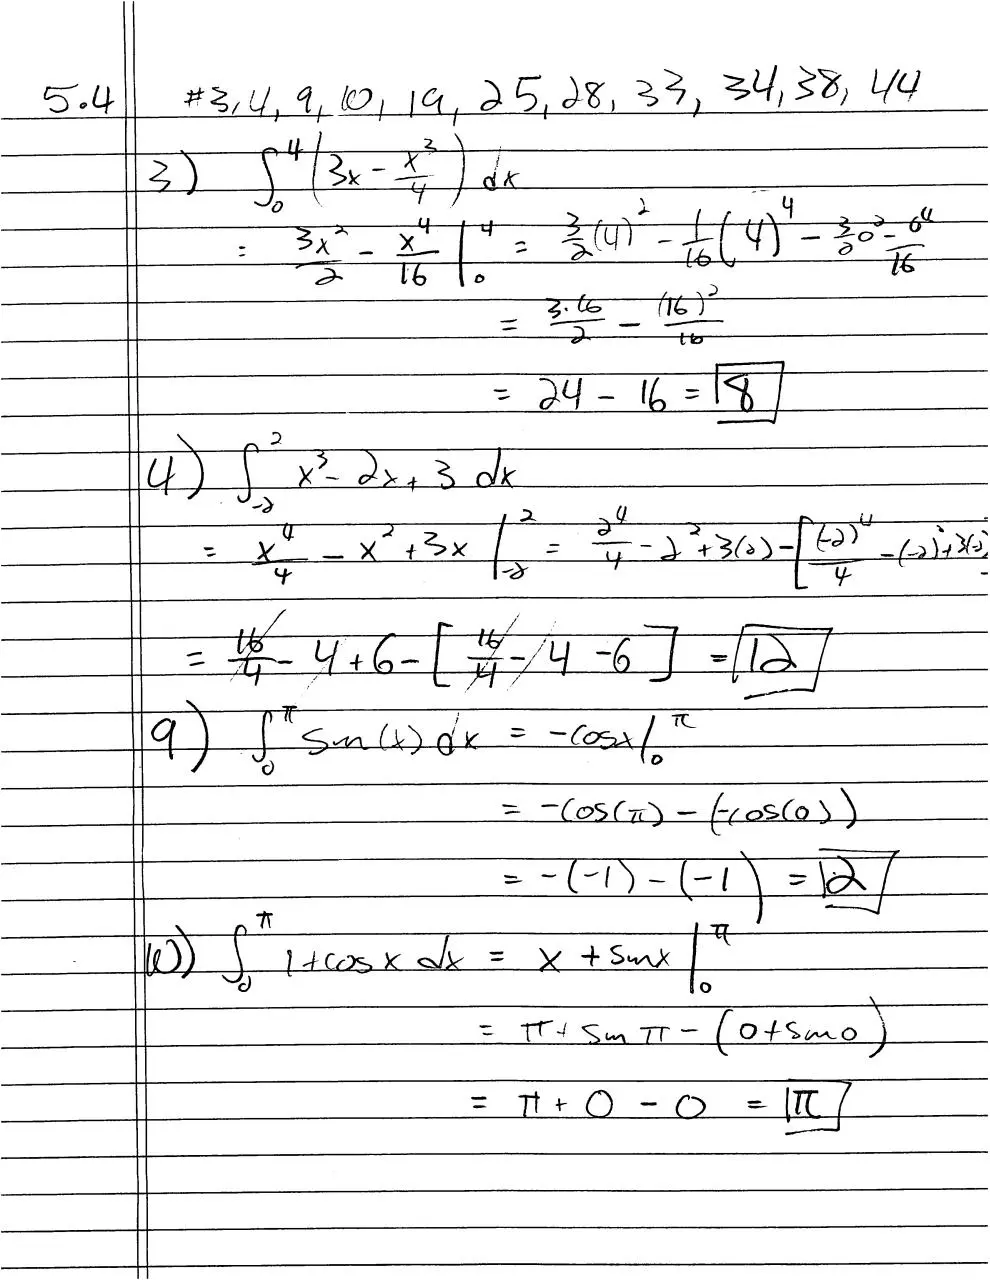 5.4 #3, 4, 9, 10, 19, 25, 28, 33, 34, 38, 44
3) ∫₀⁴ (3x - x³/4) dx
= 3x²/2 - x⁴/16 |₀⁴ = 3/2(4)² - 1/16(4)⁴ - 3/2 0² - 0⁴/16
= 3·16/2 - (16)²/16
= 24 - 16 = 8
4) ∫₋₂² x³ - 2x + 3 dx
= x⁴/4 - x² + 3x |₋₂² = 2⁴/4 - 2² + 3(2) - [(-2)⁴/4 - (-2)² + 3(-2)
= 16/4 - 4 + 6 - [16/4 - 4 - 6] = 12
9) ∫₀^π sin(x) dx = -cosx |₀^π
= -cos(π) - (-cos(0))
= -(-1) - (-1) = 2
10) ∫₀^π 1 + cos x dx = x + sinx |₀^π
= π + sin π - (0 + sin 0)
= π + 0 - 0 = π